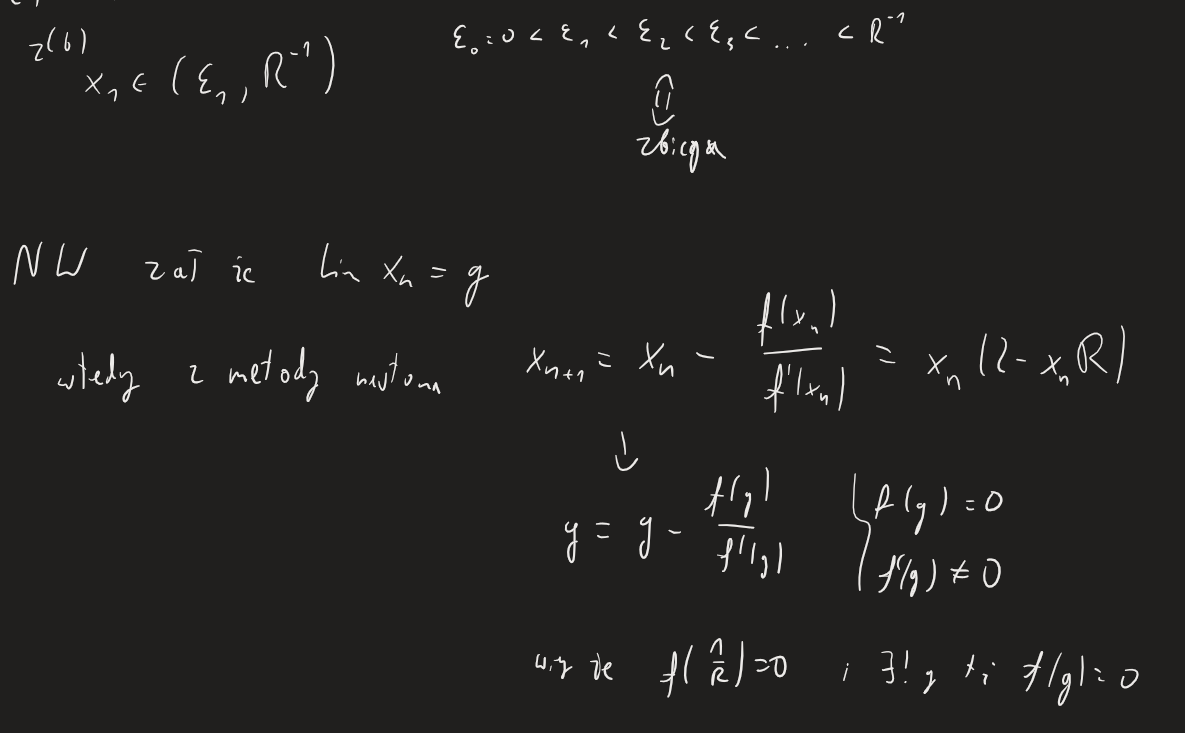 z (b)
x₁ ∈ (ε₁, R⁻¹)
ε₀ = 0 < ε₁ < ε₂ < ε₃ < .... < R⁻¹
⇕
zbieżna
NW zał że lim xₙ = g
wtedy z metody newtona xₙ₊₁ = xₙ - f(xₙ)/f'(xₙ) = xₙ(2 - xₙR)
↓
g = g - f(g)/f'(g) { f(g) = 0
f'(g) ≠ 0
wiemy że f(1/R) = 0 i ∃! g t.ż f(g) = 0